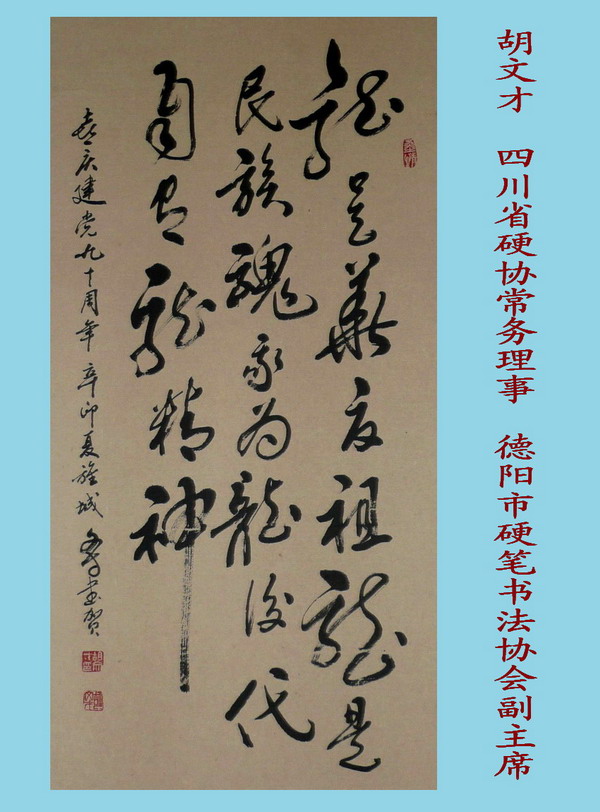 胡文才 四川省硬协常务理事 德阳市硬笔书法协会副主席
龍是華夏祖龍是
民族魂我为龍後代
有龍精神
喜庆建党九十周年 辛卯夏旌城 贺